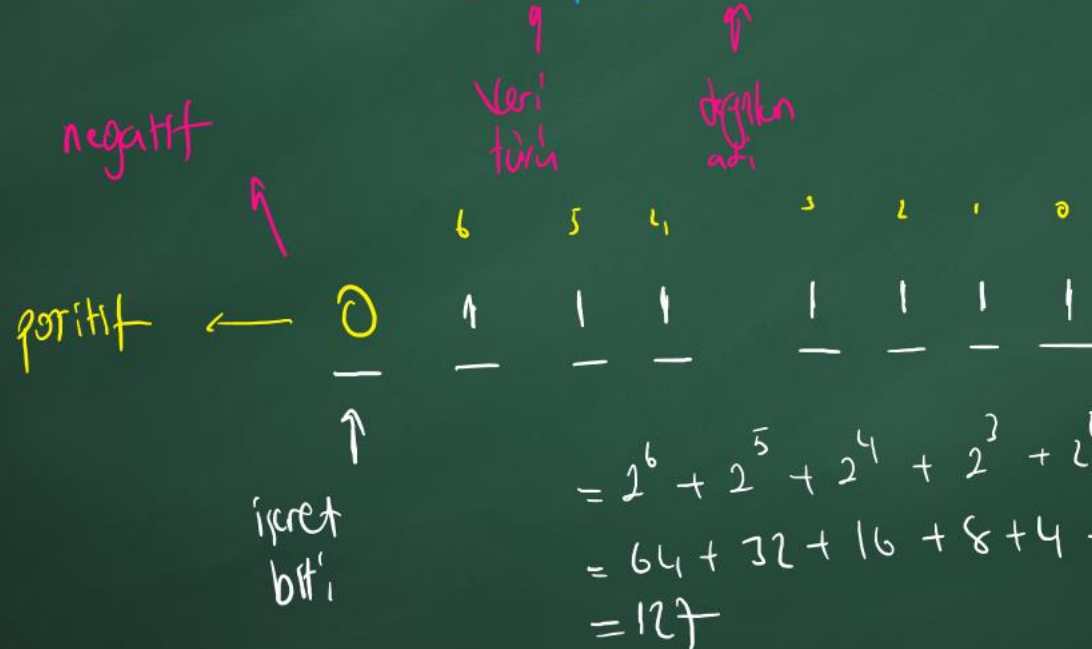 negatif
Veri
türü
değişken
adı
6 5 4 3 2 1 0
pozitif ← 0 1 1 1 1 1 1 1
işaret
biti
= 2^6 + 2^5 + 2^4 + 2^3 + 2
= 64 + 32 + 16 + 8 + 4
= 127